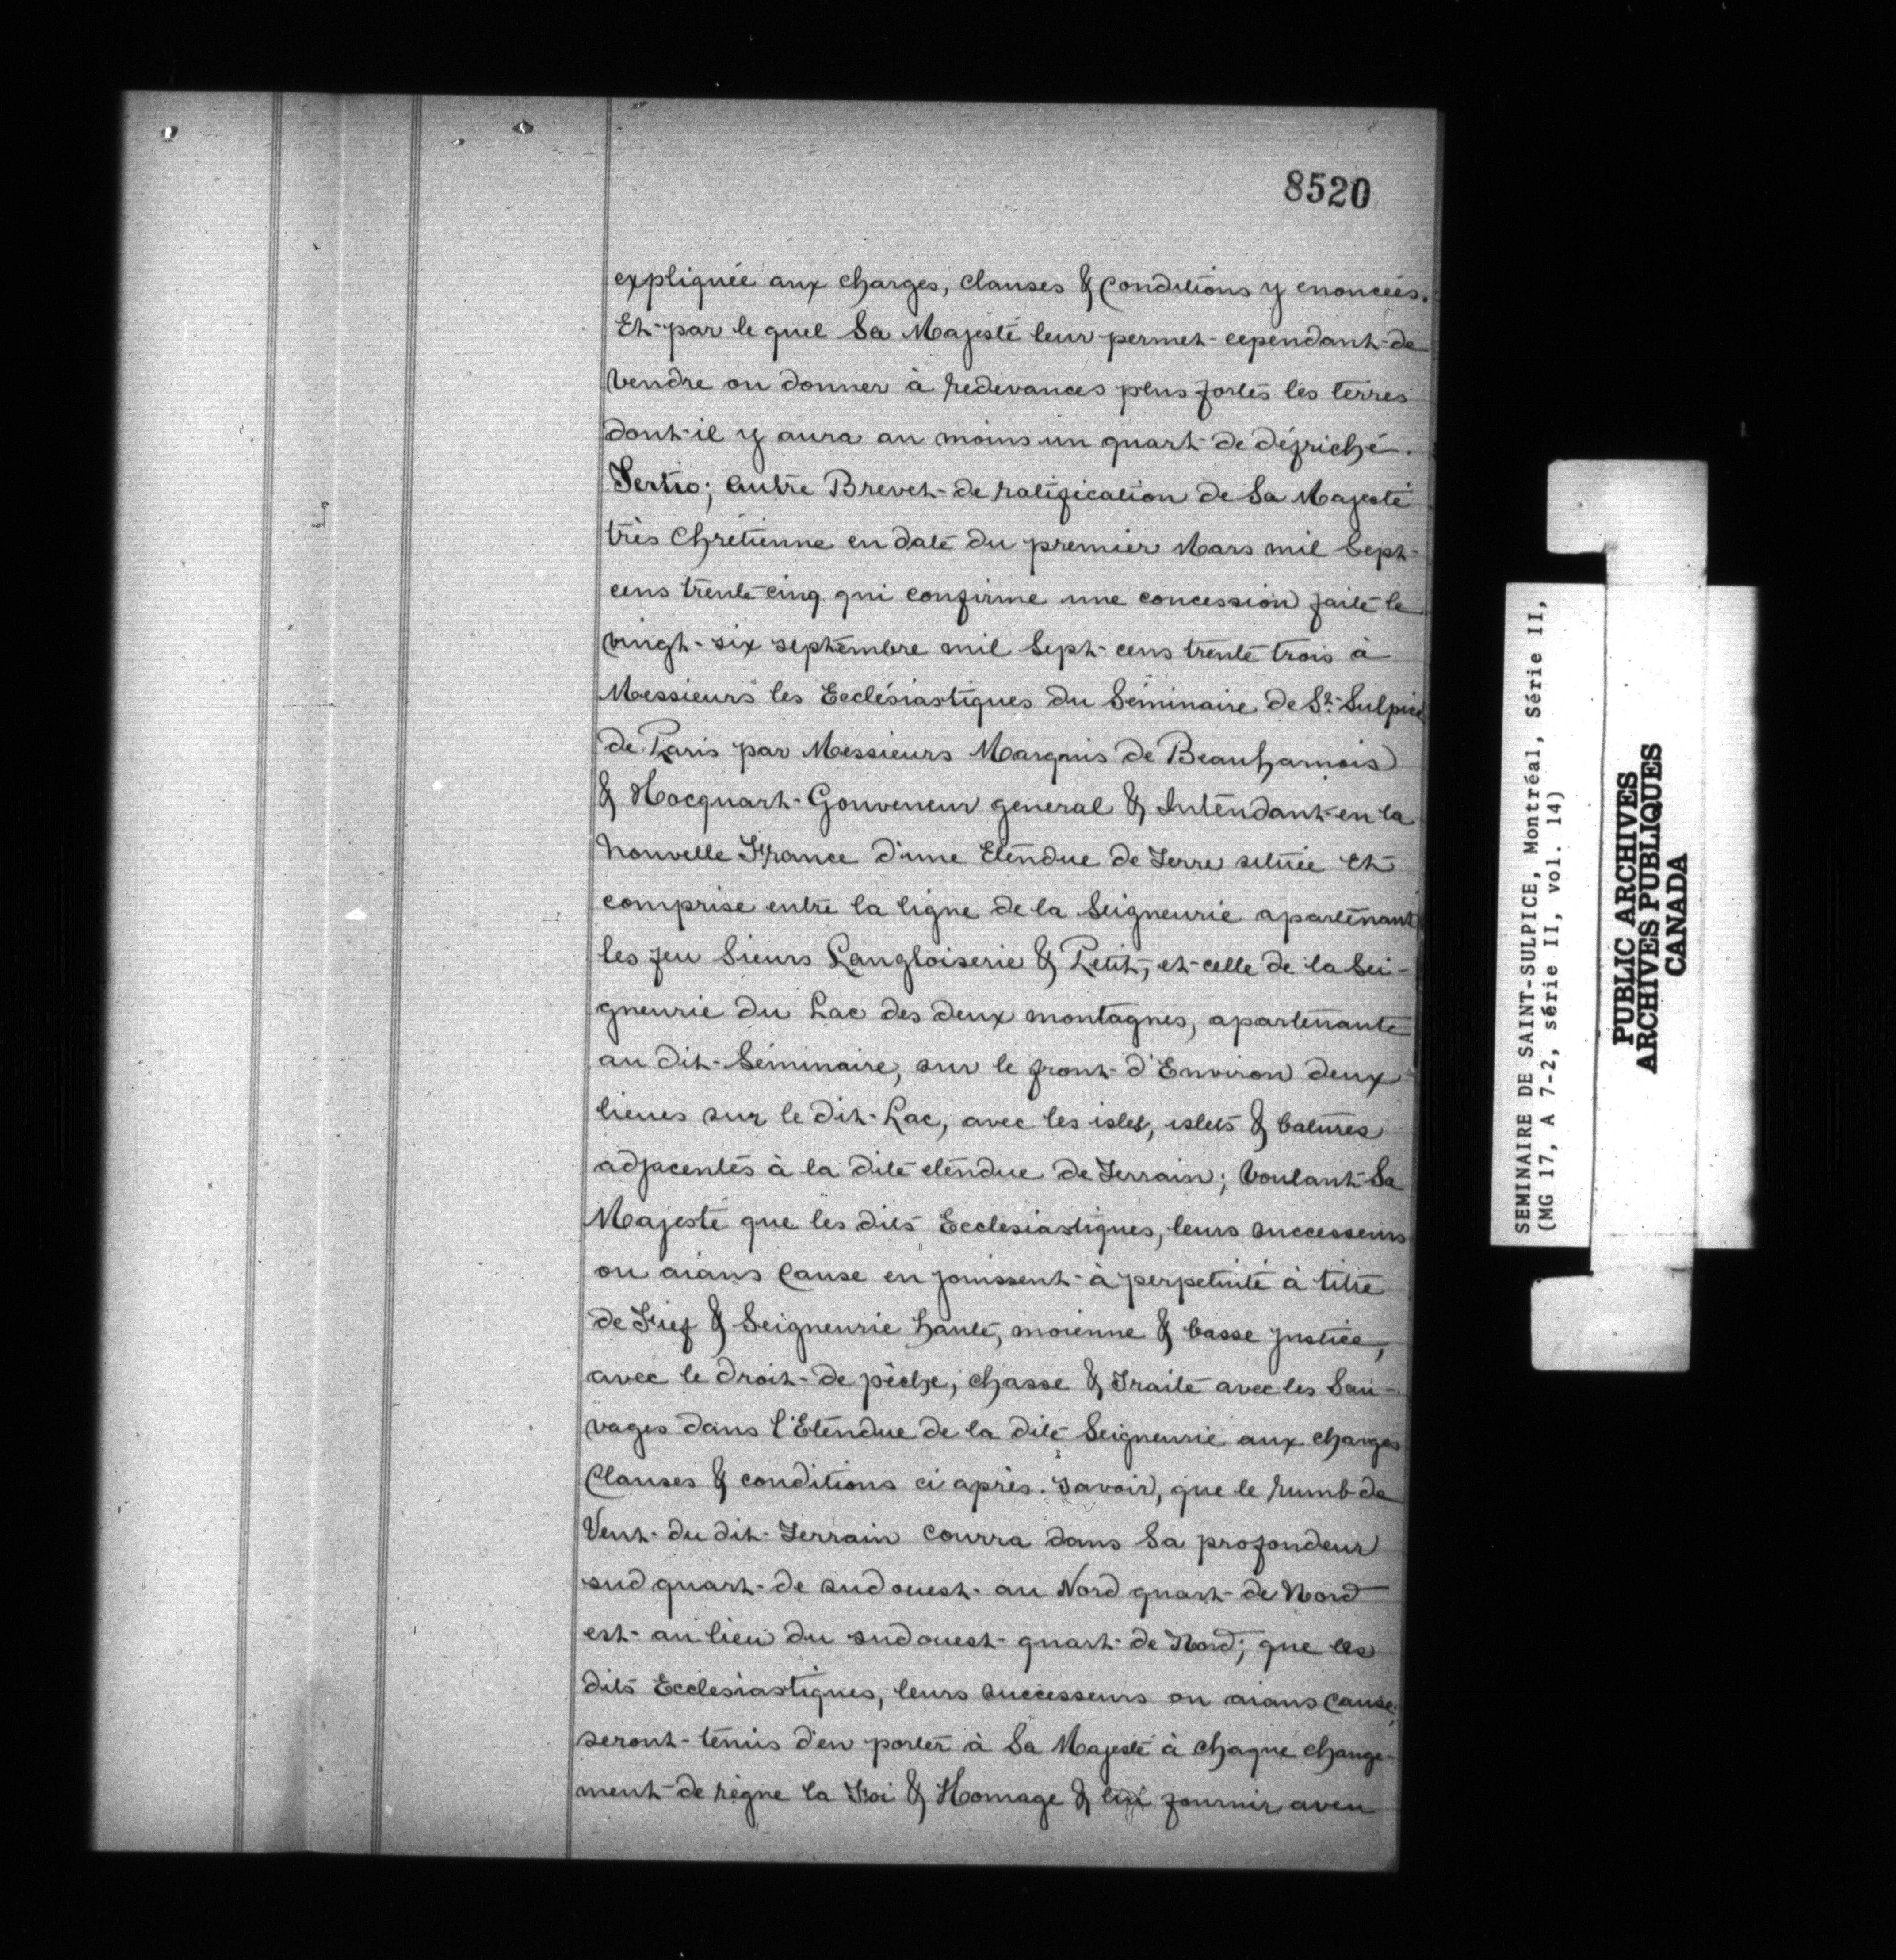 8520
expliquée aux charges, clauses & Conditions y enoncées.
Et par le quel Sa Majesté leur permet cependant de
vendre ou donner à redevances plus fortes les terres
dont il y aura au moins un quart de défriché.
Tertio; autre Brevet de ratification de Sa Majesté
très Chrétienne en date du premier Mars mil Sept
cens trente cinq qui confirme une concession faite le
vingt-six septembre mil Sept cens trente trois à
Messieurs les Ecclésiastiques du Séminaire de St. Sulpice
de Paris par Messieurs Marquis de Beauharnois
& Hocquart Gouveneur general & Intendant en la
Nouvelle France d'une Etendue de Terre située et
comprise entre la ligne de la Seigneurie apartenant
les feu Sieurs Langloiserie & Petit, et celle de la Sei-
gneurie du Lac des deux montagnes, apartenante
au dit Séminaire, sur le front d'Environ deux
lieues sur le dit Lac, avec les isles, islets & batures
adjacentes à la dite etendue de Terrain; Voulant Sa
Majesté que les dits Ecclesiastiques, leurs successeurs
ou aians Cause en jouissent à perpetuité à titre
de Fief & Seigneurie haute, moienne & basse justice,
avec le droit de pêche, chasse & Traite avec les Sau-
vages dans l'Etendue de la dite Seigneurie aux charges
Clauses & conditions ci après. Savoir, que le rumb de
Vent du dit Terrain courra dans Sa profondeur
sud quart de sud ouest au Nord quart de Nord
est au lieu du sud ouest quart de Nord; que les
dits Ecclesiastiques, leurs successeurs ou aians Cause,
seront tenus d'en porter à Sa Majesté à chaque change-
ment de règne la Foi & Homage & lui fournir aveu
SEMINAIRE DE SAINT-SULPICE, Montréal, Série II,
(MG 17, A 7-2, série II, vol. 14)
PUBLIC ARCHIVES
ARCHIVES PUBLIQUES
CANADA